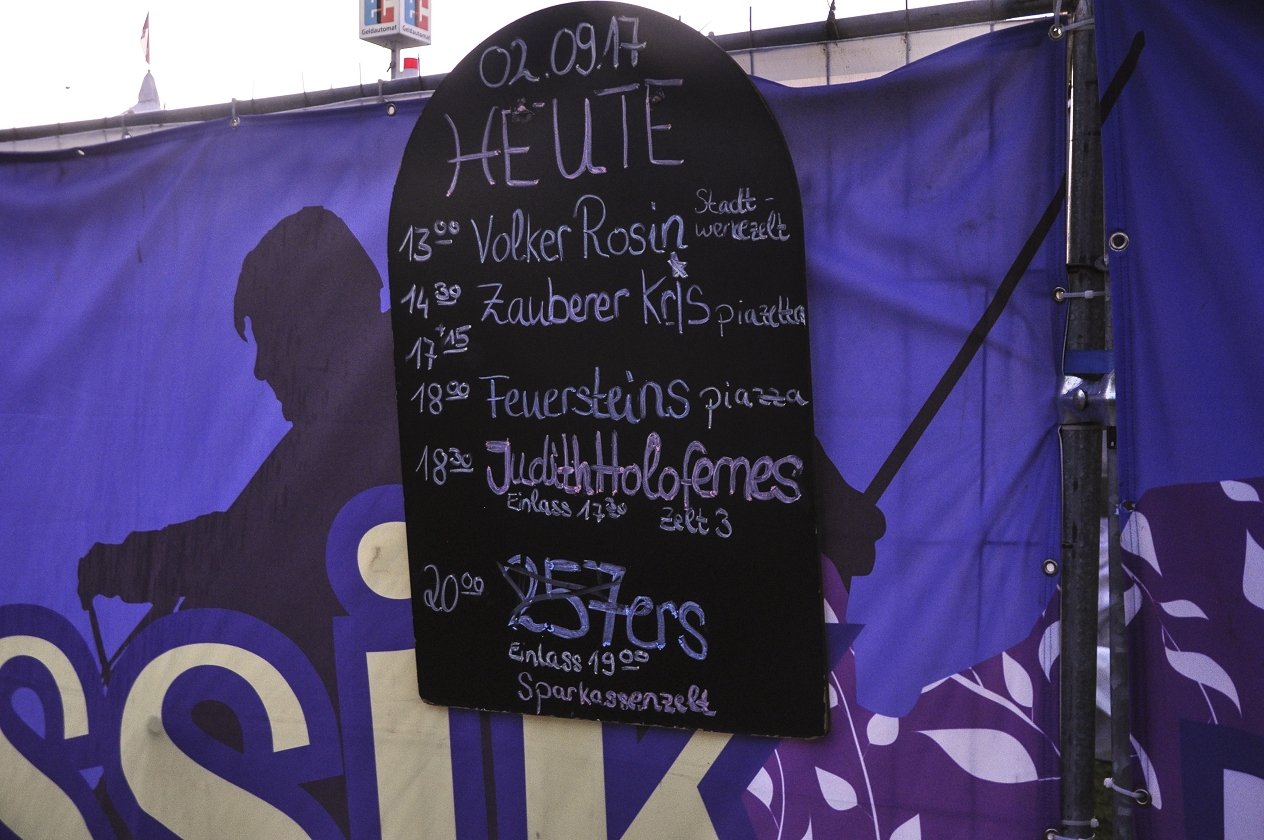 EC EC
Geldautomat Geldautomat
02.09.17
HEUTE
13⁰⁰ Volker Rosin Stadt-
werkezelt
14³⁰ Zauberer Kr!S piazetta
+
17¹⁵
18⁰⁰ Feuersteins piazza
18³⁰ Judith Holofernes
Einlass 17³⁰ Zelt 3
20⁰⁰ 257ers
Einlass 19⁰⁰
Sparkassenzelt
ssik